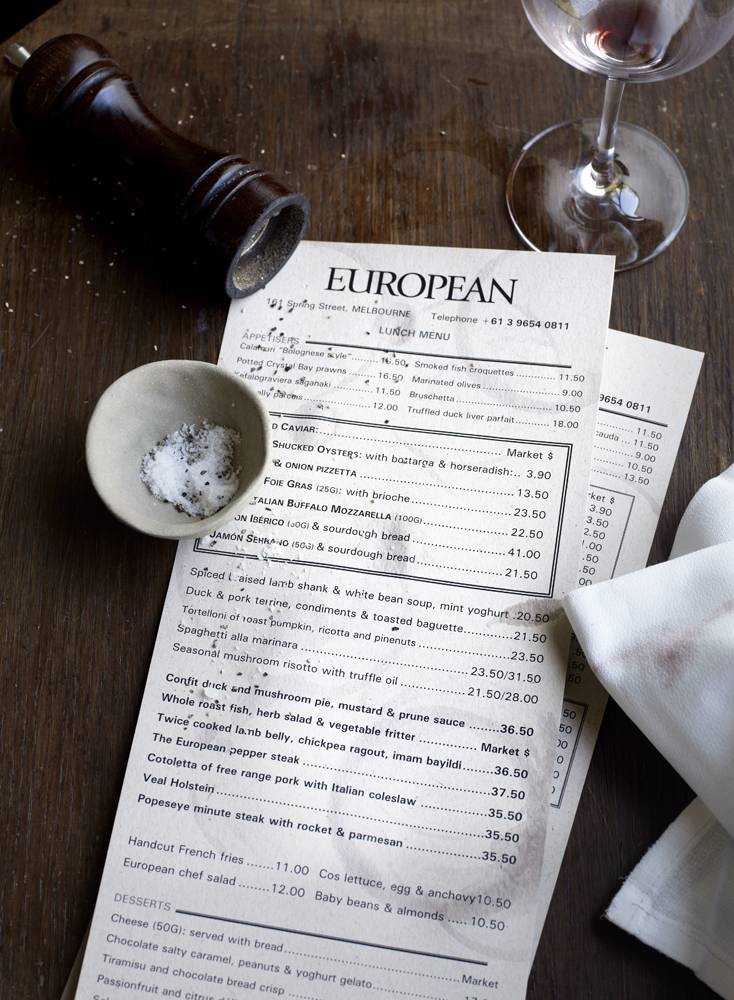 EUROPEAN
161 Spring Street, MELBOURNE Telephone +61 3 9654 0811
LUNCH MENU
APPETISERS
Calamari "Bolognese style" 16.50 Smoked fish croquettes 11.50
Potted Crystal Bay prawns 16.50 Marinated olives 9.00
saganaki 11.50 Bruschetta 10.50
12.00 Truffled duck liver parfait 18.00
CAVIAR: Market $
SHUCKED OYSTERS: with bottarga & horseradish:.. 3.90
& ONION PIZZETTA 13.50
FOIE GRAS (25G): with brioche 23.50
ITALIAN BUFFALO MOZZARELLA (100G) 22.50
IBÉRICO (50G) & sourdough bread 41.00
JAMÓN SERRANO (50G) & sourdough bread 21.50
Spiced braised lamb shank & white bean soup, mint yoghurt .20.50
Duck & pork terrine, condiments & toasted baguette 21.50
Tortelloni of roast pumpkin, ricotta and pinenuts 23.50
Spaghetti alla marinara 23.50/31.50
Seasonal mushroom risotto with truffle oil 21.50/28.00
Confit duck and mushroom pie, mustard & prune sauce 36.50
Whole roast fish, herb salad & vegetable fritter Market $
Twice cooked lamb belly, chickpea ragout, imam bayildi 36.50
The European pepper steak 37.50
Cotoletta of free range pork with Italian coleslaw 35.50
Veal Holstein 35.50
Popeseye minute steak with rocket & parmesan 35.50
Handcut French fries 11.00 Cos lettuce, egg & anchovy10.50
European chef salad 12.00 Baby beans & almonds 10.50
DESSERTS
Cheese (50G): served with bread Market
Chocolate salty caramel, peanuts & yoghurt gelato
Tiramisu and chocolate bread crisp
Passionfruit and citrus
9654 0811
11.50
9.00
10.50
13.50